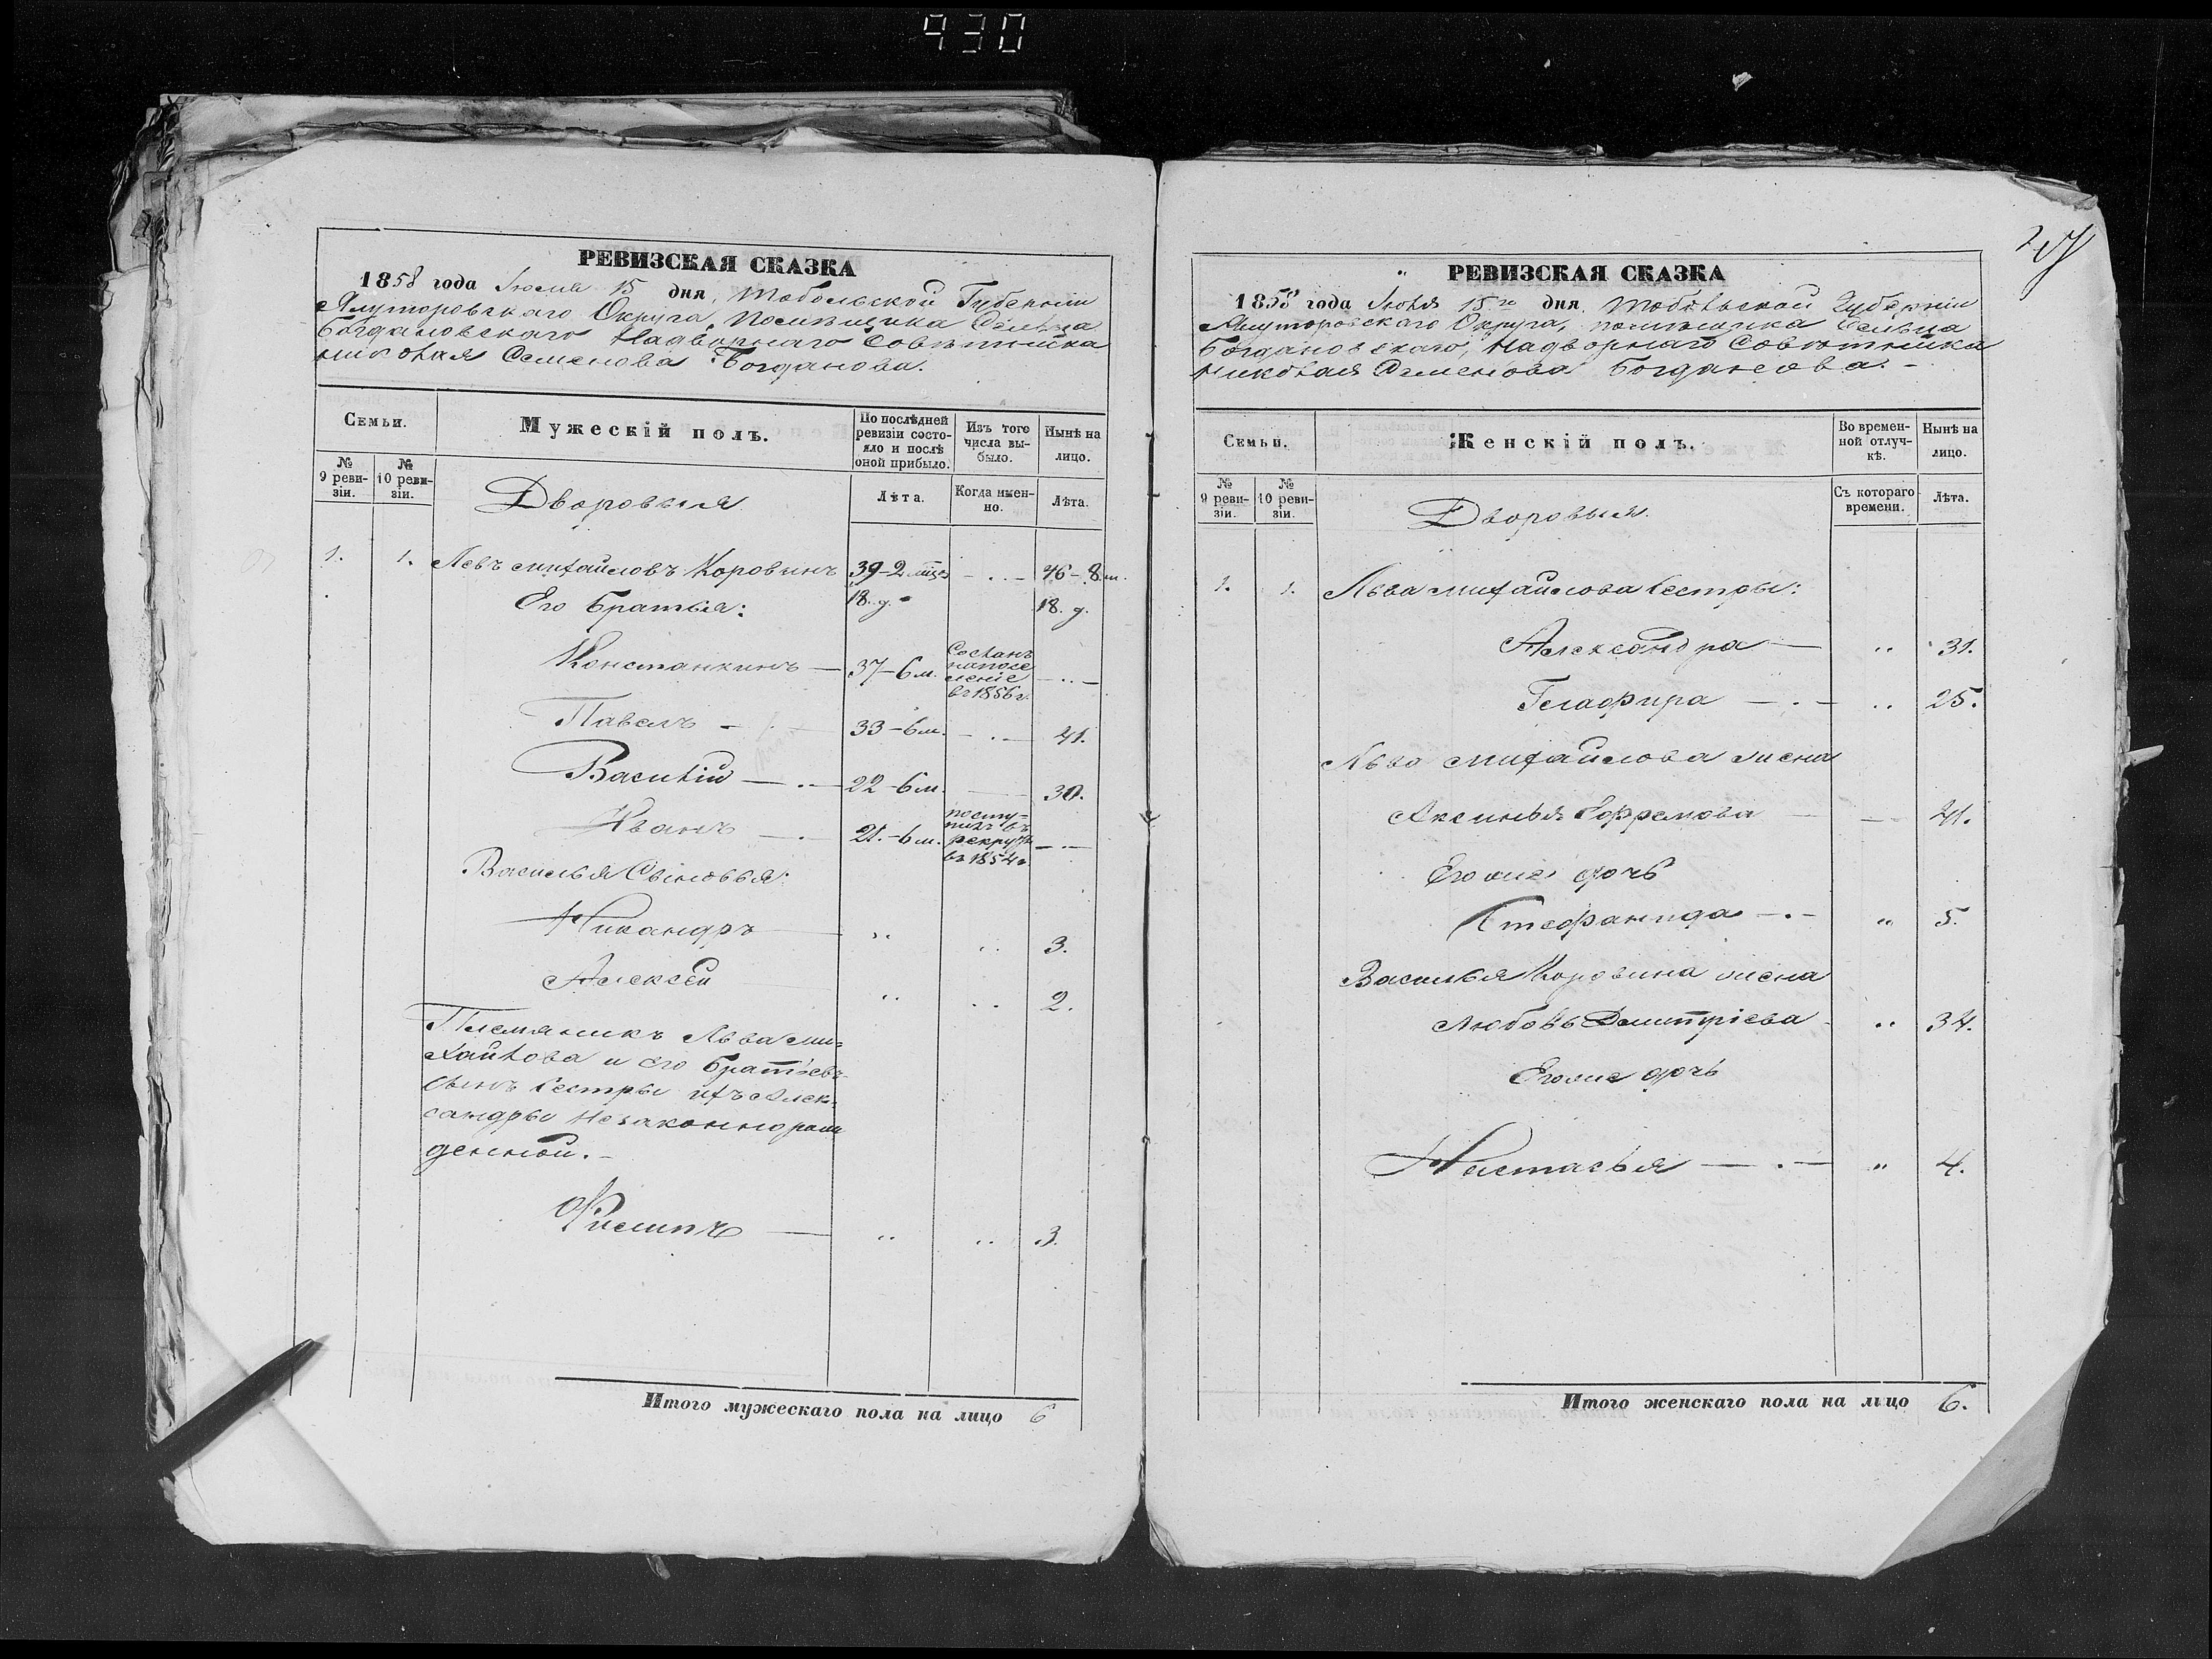 930
РЕВИЗСКАЯ СКАЗКА
1858 года Іюня 15 дня, Тобольской Губерніи
Ялуторовскаго Округа, Помѣщика Сельца
Богдановскаго Надворнаго Совѣтника
Николая Семенова Богданова.
Семьи.
Мужескій полъ.
По послѣдней ревизіи состояло и послѣ оной прибыло.
Изъ того числа выбыло.
Нынѣ на лицо.
№ 9 ревизіи.
№ 10 ревизіи.
Дворовыя
Лѣта.
Когда именно.
Лѣта.
1. 1. Левъ Михайловъ Коровинъ 39-2 мѣс - .. - 46-8 м.
Его братья: 18. д. 18. д.
Константинъ — 37-6 м. Сосланъ на поселеніе въ 1856 г. - .. -
Павелъ — 33-6 м. - . - 41.
Василій — . — 22-6 м. — 30.
Иванъ — . 21.-6 м. поступилъ въ рекруты въ 1854 г. - . -
Василья Сыновья:
Никандръ — .. .. 3.
Алексѣй .. .. 2.
Племяникъ Льва Ми=
хайлова и его братьевъ
сынъ сестры ихъ Алек=
сандры незаконнорож
денный. -
Филипъ — .. .. 3.
Итого мужескаго пола на лицо 6
РЕВИЗСКАЯ СКАЗКА
1858 года Іюня 15го дня. Тобольской Губерніи
Ялуторовскаго Округа, помѣщика Сельца
Богдановскаго, Надворнаго Совѣтника
Николая Семенова Богданова. -
Семьи.
Женскій полъ.
Во временной отлучкѣ.
Нынѣ на лицо.
№ 9 ревизіи.
№ 10 ревизіи.
Дворовыя.
Съ котораго времени.
Лѣта.
1. 1. Льва Михайлова сестры:
Александра — .. 31.
Глафира — . — .. 25.
Льва Михайлова жена
Аксинья Ефремова — 41.
Его же дочь
Стефанида — . — .. 5.
Василья Коровина жена
Любовь Дмитріева .. 34.
Его же дочь
Настасья — . — .. 4.
Итого женскаго пола на лицо 6.